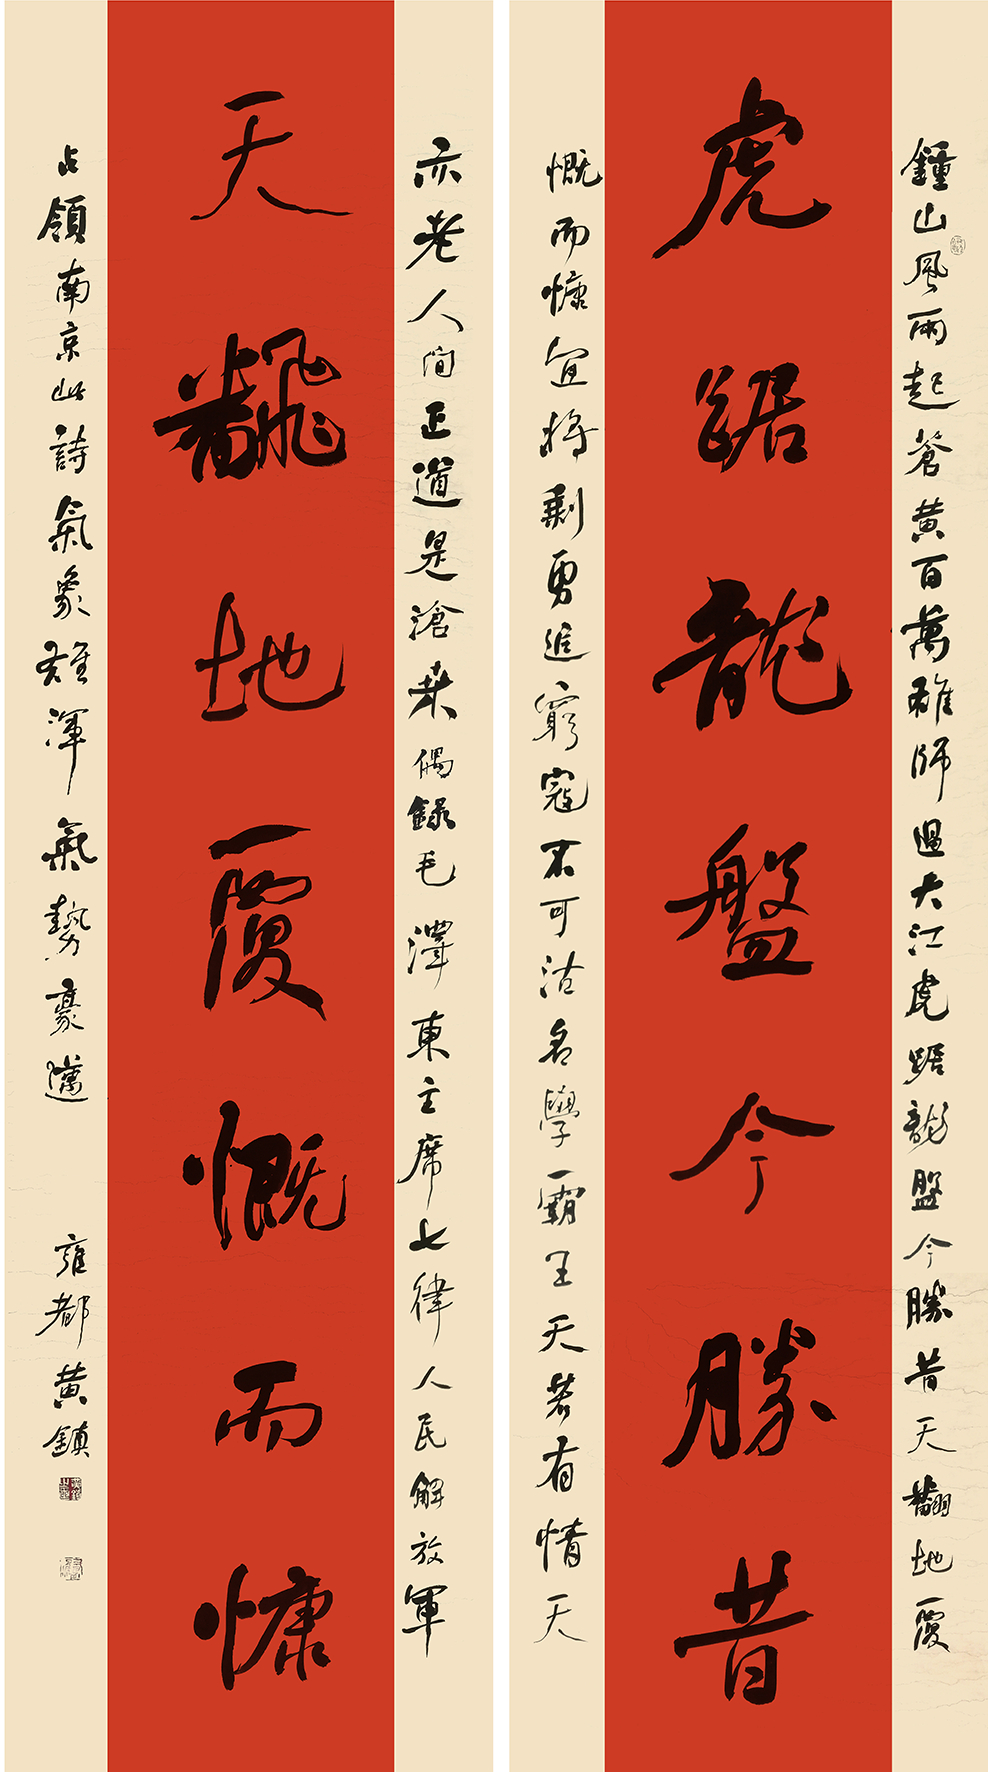 虎踞龍盤今勝昔
天飜地覆慨而慷
鍾山風雨起蒼黃百萬雄師過大江虎踞龍盤今勝昔天翻地覆
慨而慷宜將剩勇追窮寇不可沽名學霸王天若有情天
亦老人间正道是滄桒偶録毛澤東主席七律人民解放軍
占領南京此詩氣象雄渾氣勢豪邁
雍都黄鎮